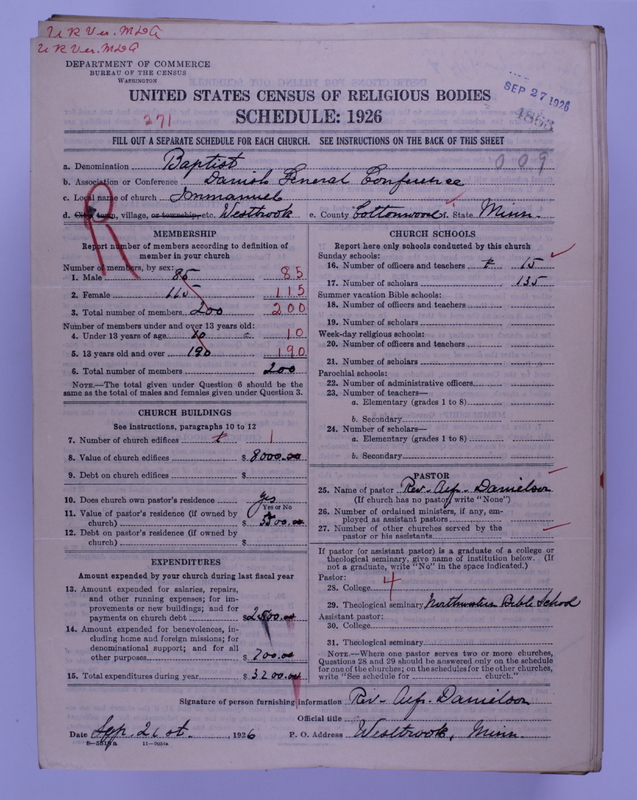 U R Ver. MDA
U R Ver. MDA
DEPARTMENT OF COMMERCE
BUREAU OF THE CENSUS
WASHINGTON
SEP 27 1926
UNITED STATES CENSUS OF RELIGIOUS BODIES
SCHEDULE: 1926
271
FILL OUT A SEPARATE SCHEDULE FOR EACH CHURCH. SEE INSTRUCTIONS ON THE BACK OF THIS SHEET
009
a. Denomination Baptist
b. Association or Conference Danish General Conference
c. Local name of church Immanuel
d. City, town, village, or township, etc. Westbrook e. County Cottonwood f. State Minn.
R
MEMBERSHIP
Report number of members according to definition of
member in your church
Number of members, by sex:
1. Male 85 85
2. Female 115 115
3. Total number of members 200 200
Number of members under and over 13 years old:
4. Under 13 years of age 10 10
5. 13 years old and over 190 190
6. Total number of members 200
NOTE.—The total given under Question 6 should be the
same as the total of males and females given under Question 3.
CHURCH BUILDINGS
See instructions, paragraphs 10 to 12
7. Number of church edifices 1
8. Value of church edifices $ 8000.00
9. Debt on church edifices $
10. Does church own pastor's residence yes
Yes or No
11. Value of pastor's residence (if owned by
church) $
12. Debt on pastor's residence (if owned by
church) $
EXPENDITURES
Amount expended by your church during last fiscal year
13. Amount expended for salaries, repairs,
and other running expenses; for im-
provements or new buildings; and for
payments on church debt $ 2500.00
14. Amount expended for benevolences, in-
cluding home and foreign missions; for
denominational support; and for all
other purposes $ 700.00
15. Total expenditures during year $ 3200.00
CHURCH SCHOOLS
Report here only schools conducted by this church
Sunday schools:
16. Number of officers and teachers 15
17. Number of scholars 135
Summer vacation Bible schools:
18. Number of officers and teachers
19. Number of scholars
Week-day religious schools:
20. Number of officers and teachers
21. Number of scholars
Parochial schools:
22. Number of administrative officers
23. Number of teachers—
a. Elementary (grades 1 to 8)
b. Secondary
24. Number of scholars—
a. Elementary (grades 1 to 8)
b. Secondary
PASTOR
25. Name of pastor Rev. Alf. Danielson
(If church has no pastor, write "None")
26. Number of ordained ministers, if any, em-
ployed as assistant pastors
27. Number of other churches served by the
pastor or his assistants
If pastor (or assistant pastor) is a graduate of a college or
theological seminary, give name of institution below. (If
not a graduate, write "No" in the space indicated.)
Pastor:
4
28. College
29. Theological seminary Northwestern Bible School
Assistant pastor:
30. College
31. Theological seminary
NOTE.—Where one pastor serves two or more churches,
Questions 28 and 29 should be answered only on the schedule
for one of the churches; on the schedules for the other churches,
write "See schedule for church."
Signature of person furnishing information Rev. Alf. Danielson
Official title
Date Sep. 21 st., 1926 P. O. Address Westbrook, Minn.